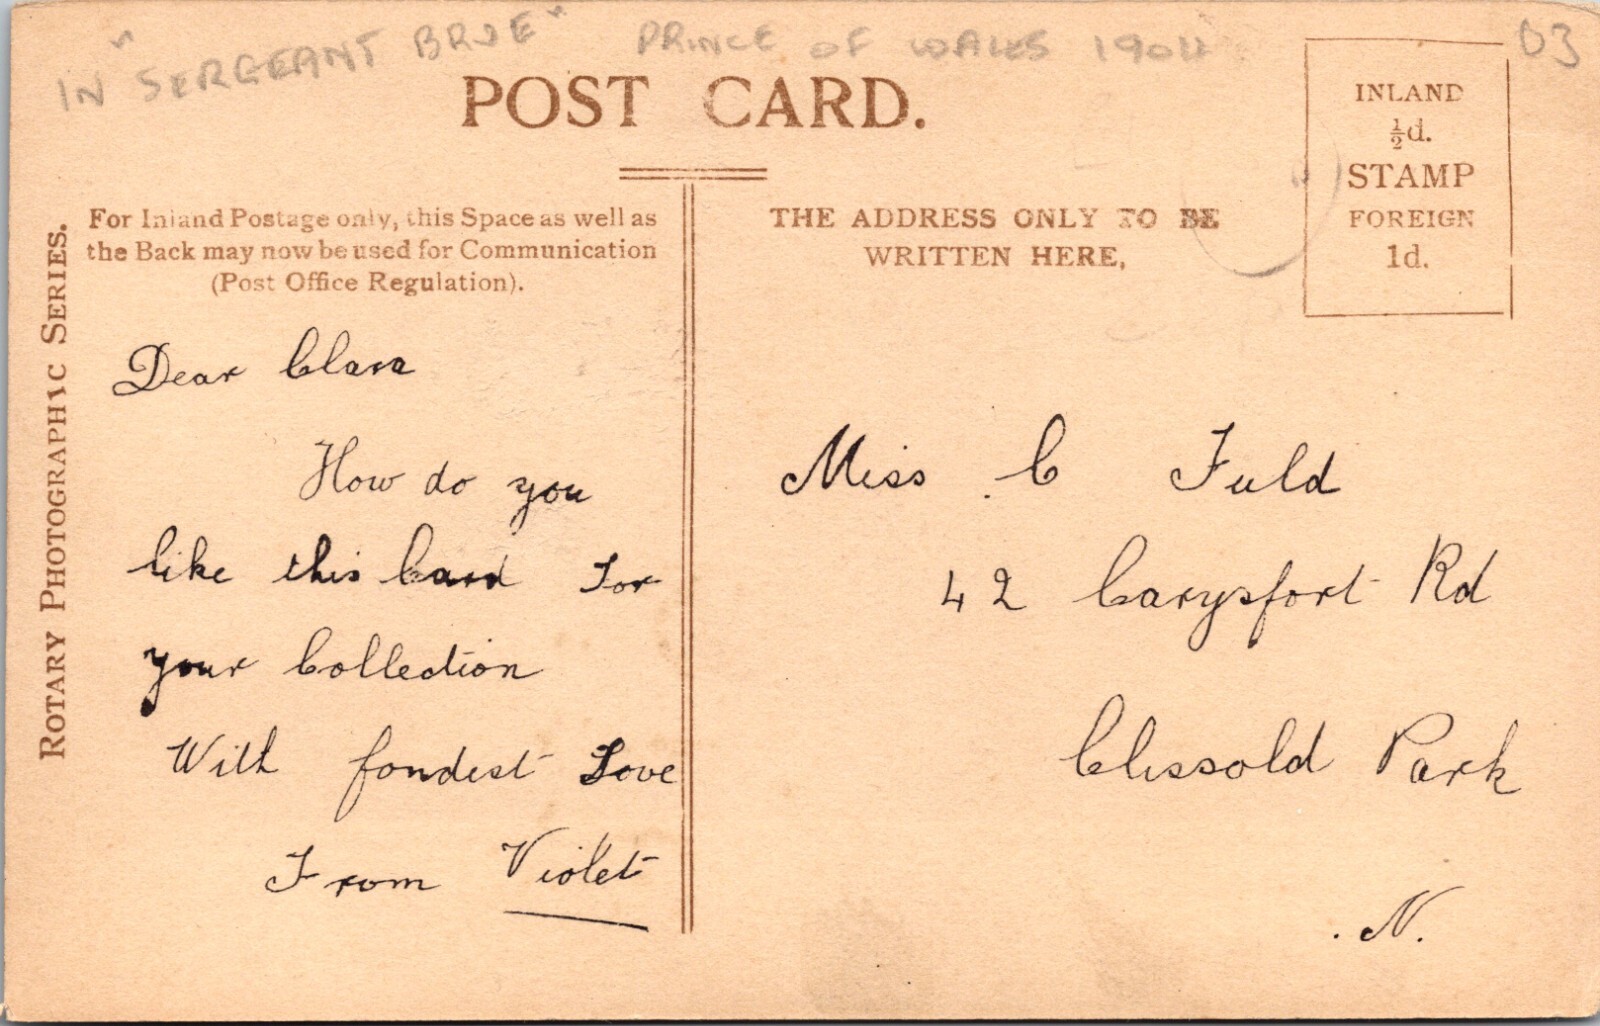 IN "SERGEANT BRUE" PRINCE OF WALES 1904
03
POST CARD.
INLAND
½d.
STAMP
FOREIGN
1d.
ROTARY PHOTOGRAPHIC SERIES.
For Inland Postage only, this Space as well as
the Back may now be used for Communication
(Post Office Regulation).
THE ADDRESS ONLY TO BE
WRITTEN HERE.
Dear Clara
How do you
like this Card For
your Collection
With fondest Love
From Violet
Miss C Fuld
42 Carysfort Rd
Clissold Park
N.